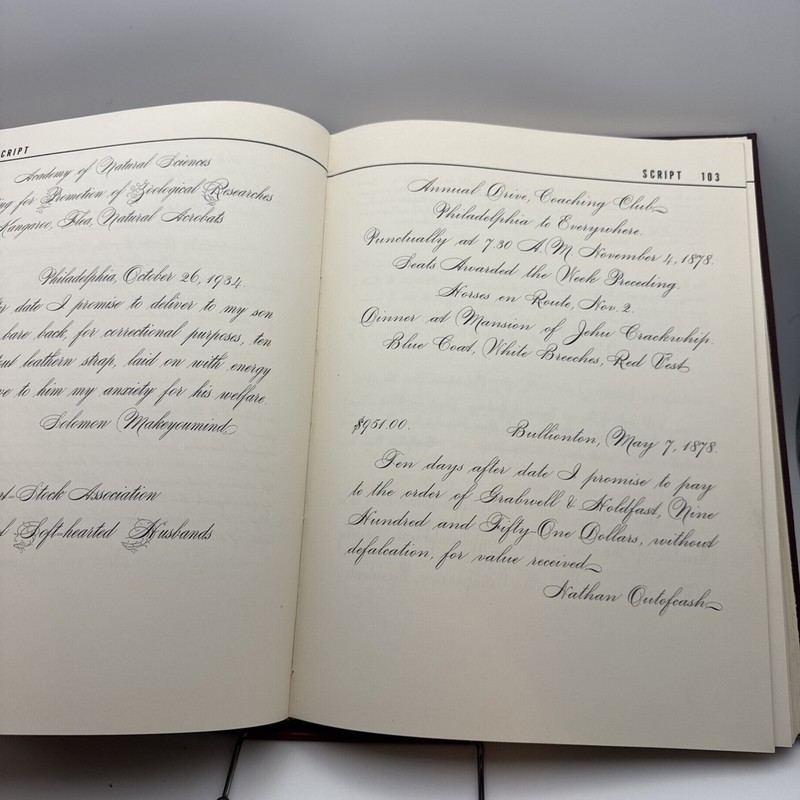 SCRIPT
Academy of Natural Sciences
for Promotion of Zoological Researches
Kangaroo, Flea, Natural Acrobats
Philadelphia, October 26, 1934.
date I promise to deliver to my son
bare back, for correctional purposes, ten
leathern strap, laid on with energy
to him my anxiety for his welfare.
Solomon Makeyoumind
Stock Association
Soft-hearted Husbands
SCRIPT 103
Annual Drive, Coaching Club
Philadelphia to Everywhere.
Punctually at 7.30 A.M. November 4, 1878.
Seats Awarded the Week Preceding.
Horses en Route, Nov. 2.
Dinner at Mansion of John Crackwhip.
Blue Coat, White Breeches, Red Vest
$951.00.
Bullionton, May 7, 1878.
Ten days after date I promise to pay
to the order of Grabwell & Holdfast, Nine
Hundred and Fifty-One Dollars, without
defalcation, for value received
Nathan Outofcash